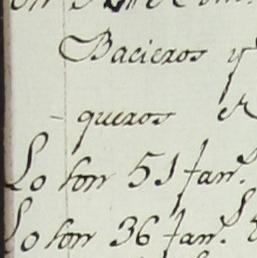 Bacieros y
- queros
Lo son 51 fan.ˢ
Lo son 36 fan.ˢ